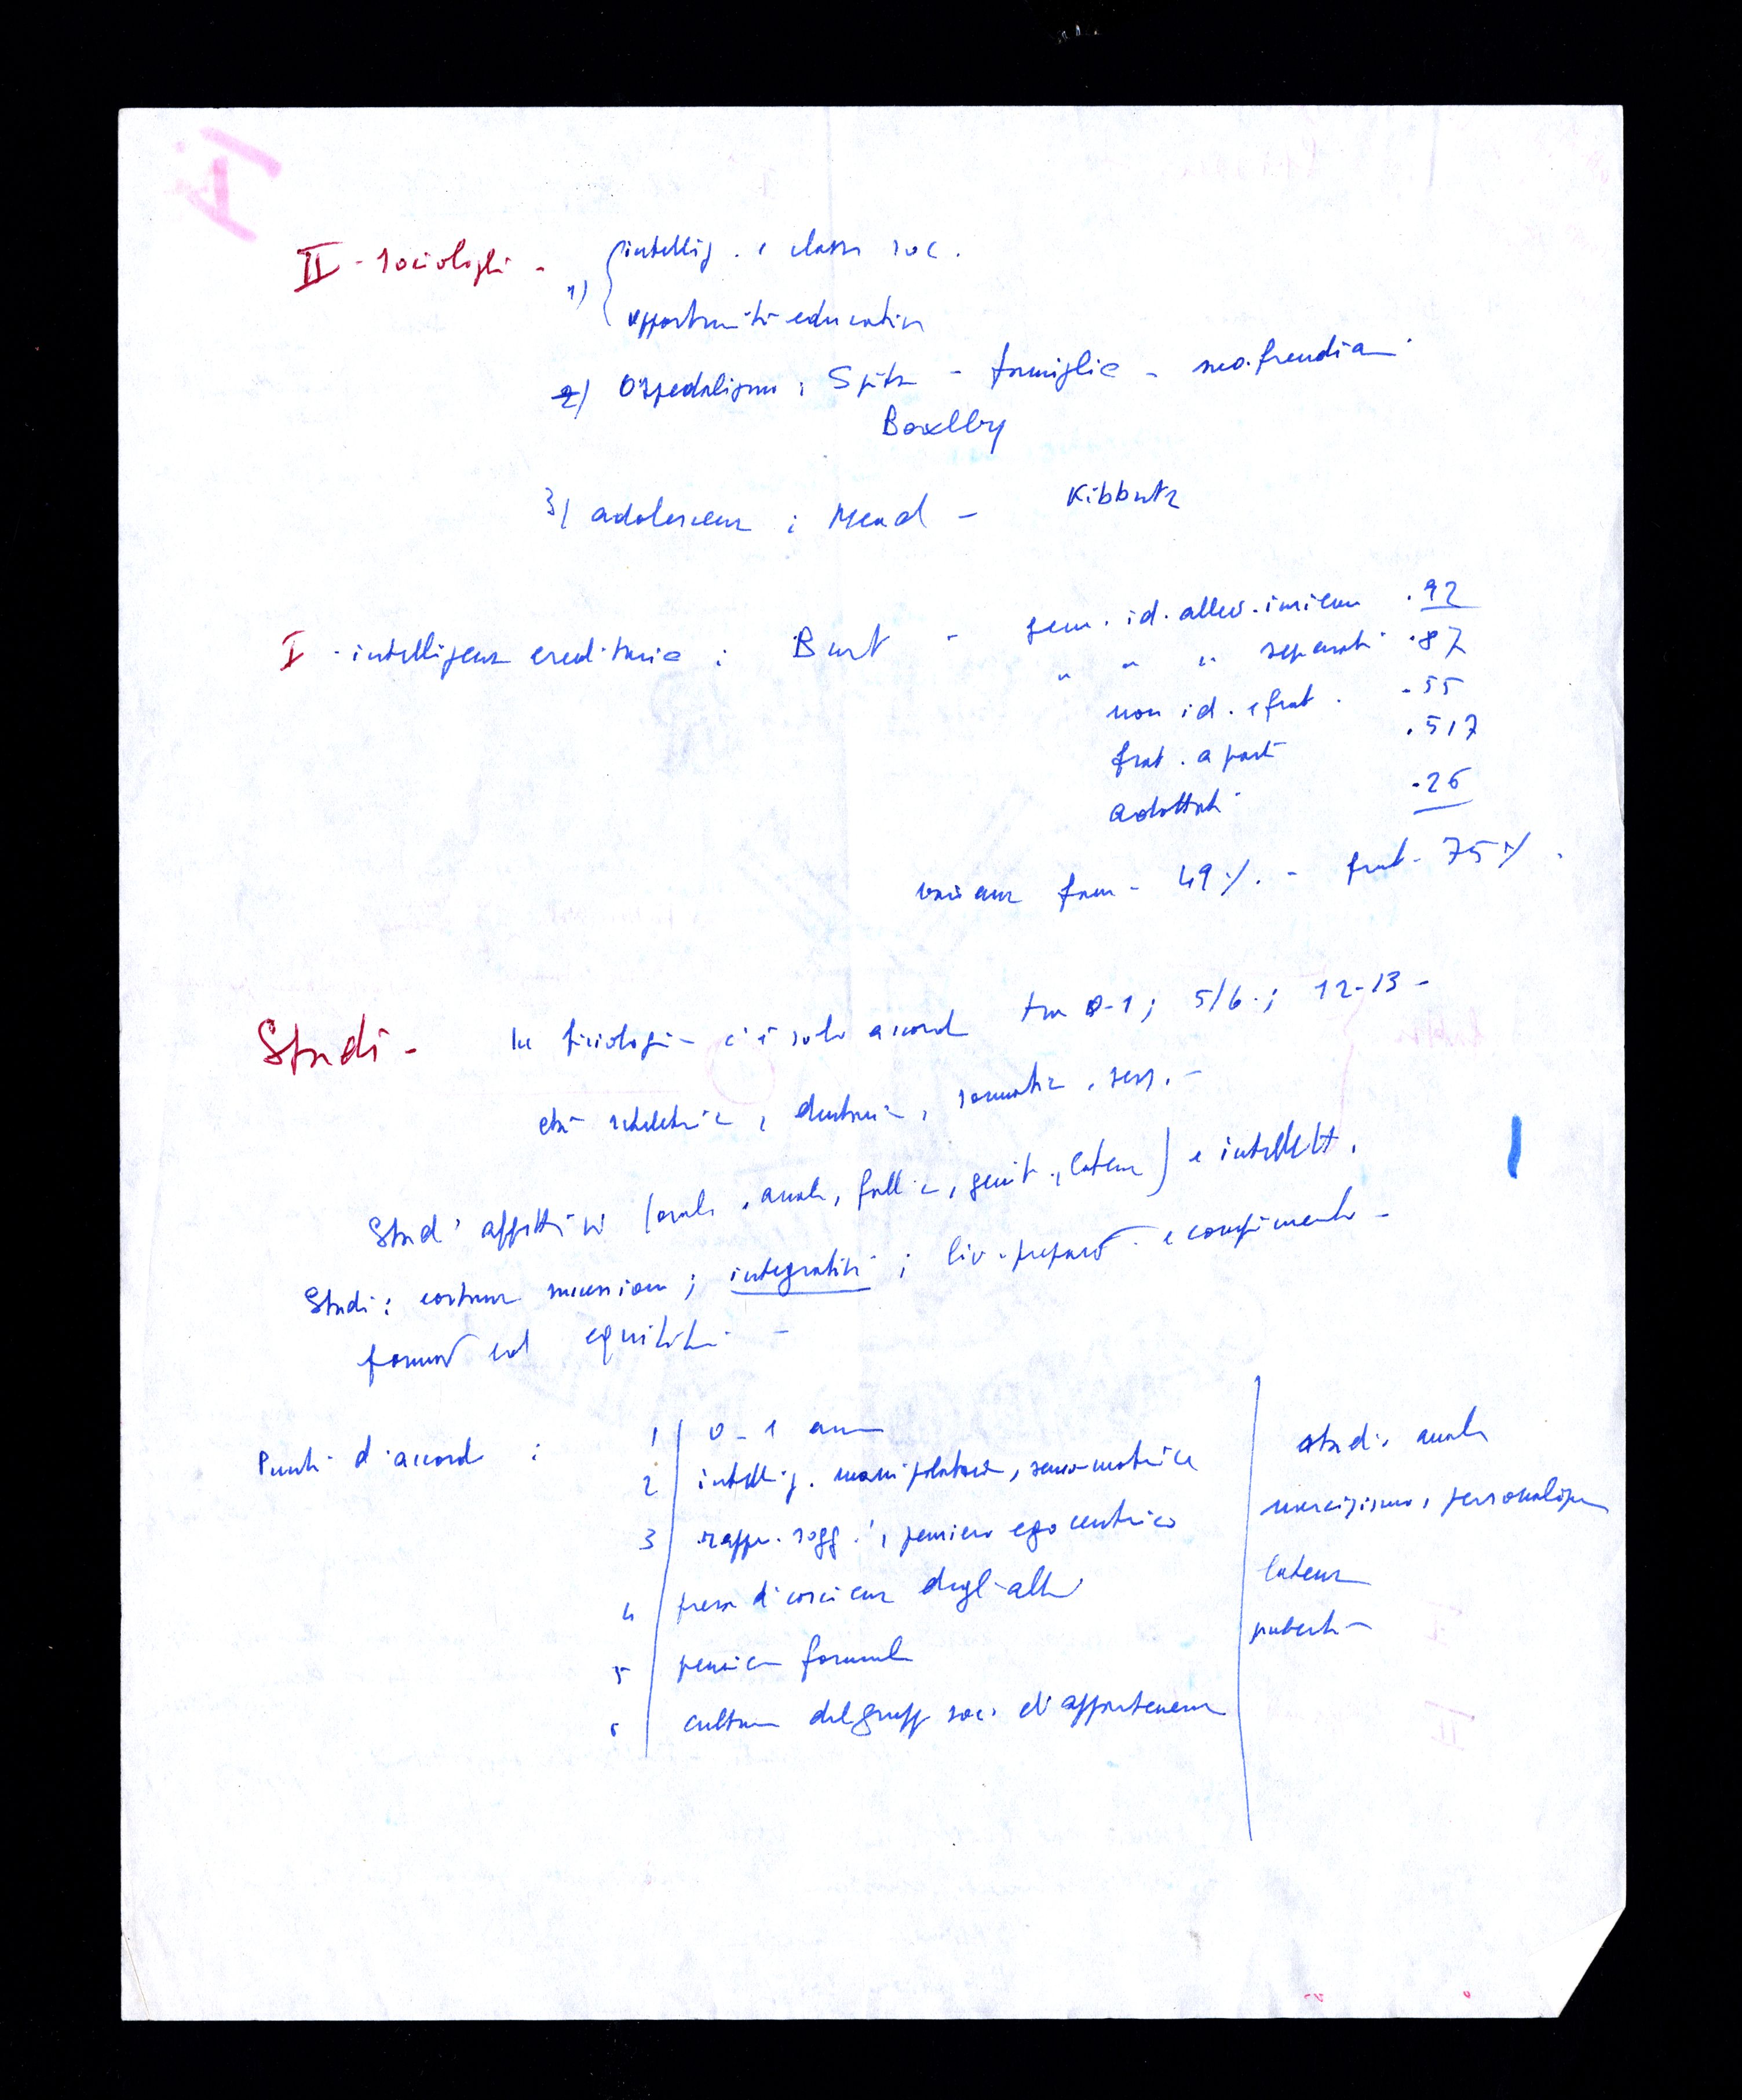 II - sociologhi -
1) intellig. e classi soc.
opportunità educativa
2) Ospedalismo: Spitz - famiglie - neo-freudian.
Bowlby
3) adolescenza: Mead - Kibbutz
I - intelligenza ereditaria: Burt - gem. id. allev. insieme .92
" " " separati .87
non id. e frat. .55
frat. a part .517
adottati .26
fam - 49% - frat - 75%.
Stadi - In fisiologia c'è solo accordo tra 0-1; 5/6; 12-13 -
età scheletrica, dentaria, somatica, sess. -
Stadi affettivi (orale, anale, fallic, genit., latenza) e intellett.
Stadi: costanza successione; integrativi; liv. preparaz. e compimento -
formaz ed equilibri -
Punti d'accordo:
1 0-1 anno
2 intellig. manipolatoria, senso-motrice
3 rappr. sogg., pensiero egocentrico
4 presa di coscienza degli altri
5 pensiero formale
6 cultura del grupp soc. d'appartenenza
stadi, anale
narcisismo, personalism
latenza
pubertà